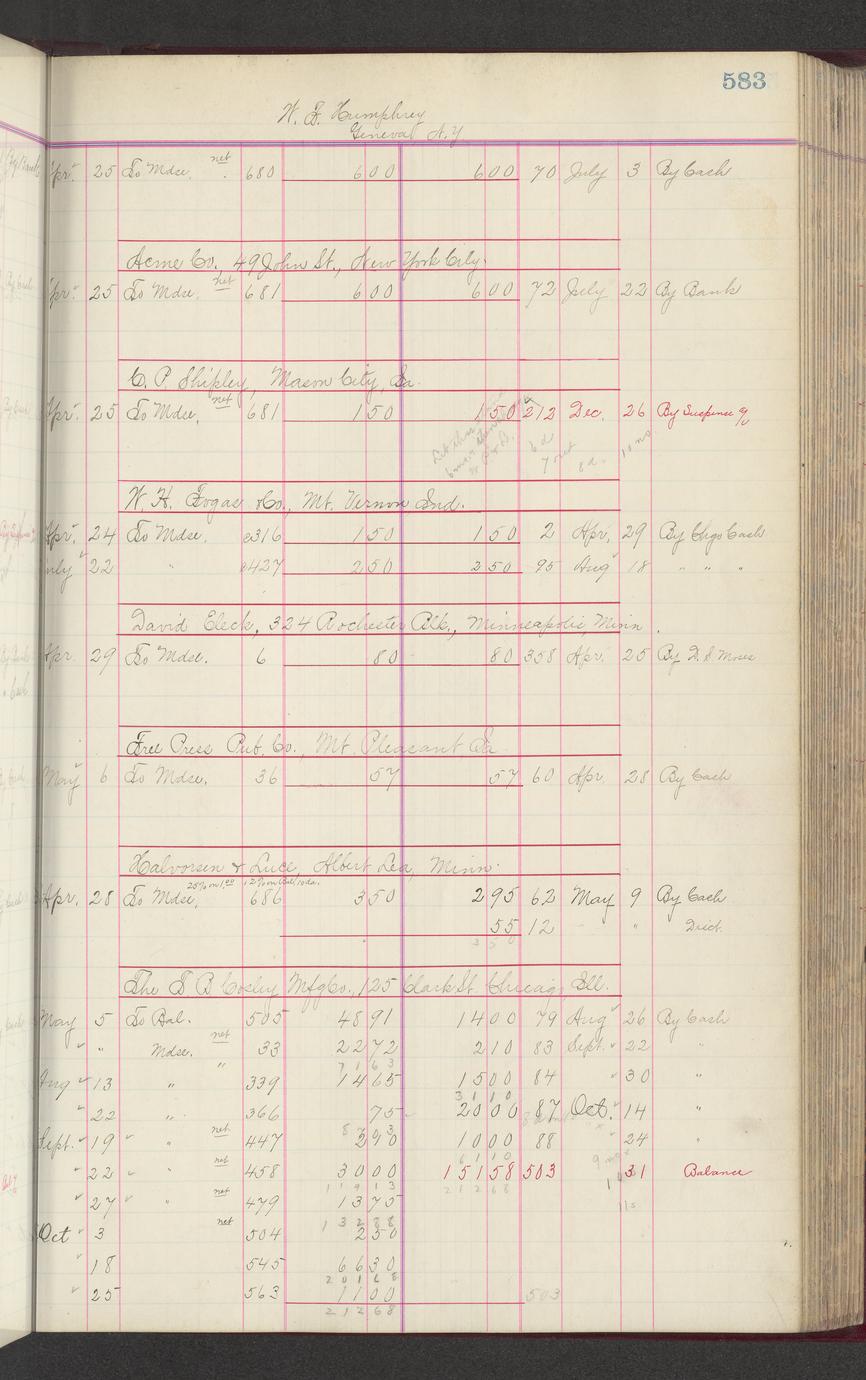 583
W. F. Humphrey
Geneva N.Y.
Apr. 25 To Mdse. net 680 600 600 70 July 3 By Cash
Acme Co., 49 John St., New York City.
Apr. 25 To Mdse. net 681 600 600 72 July 22 By Bank
C. P. Shipley, Mason City, Ia.
Apr. 25 To Mdse. net 681 150 150 212 Dec. 26 By Suspense
W. H. Fogas & Co., Mt. Vernon Ind.
Apr. 24 To Mdse. c316 150 150 2 Apr. 29 By Chgo Cash
July 22 " c427 250 250 95 Aug 18 " " "
David Eleck, 324 Rochester Blk., Minneapolis, Minn.
Apr. 29 To Mdse. 6 80 80 358 Apr. 25 By D. S. Moses
Free Press Pub. Co., Mt. Pleasant Ia.
May 6 To Mdse. 36 57 57 60 Apr. 28 By Cash
Halvorsen & Luce, Albert Lea, Minn.
Apr. 28 To Mdse. 686 350 295 62 May 9 By Cash
55 12 " Disct.
350
The F B Cosley Mfg Co., 125 Clark St. Chicago, Ill.
May 5 To Bal. 505 4891 1400 79 Aug 26 By Cash
" " Mdse. net 33 2272 210 83 Sept. 22 "
7163
Aug 13 " " 339 1465 1500 84 " 30 "
3110
" 22 " 366 75 2000 87 Oct. 14 "
8703
Sept. 19 " " net 447 290 1000 88 " 24 "
6110
" 22 " " net 458 3000 15158 503 31 Balance
11913 21268
" 27 " " net 479 1375 11s
13288
Oct 3 net 504 250
" 18 545 6630
20168
" 25 563 1100 503
21268